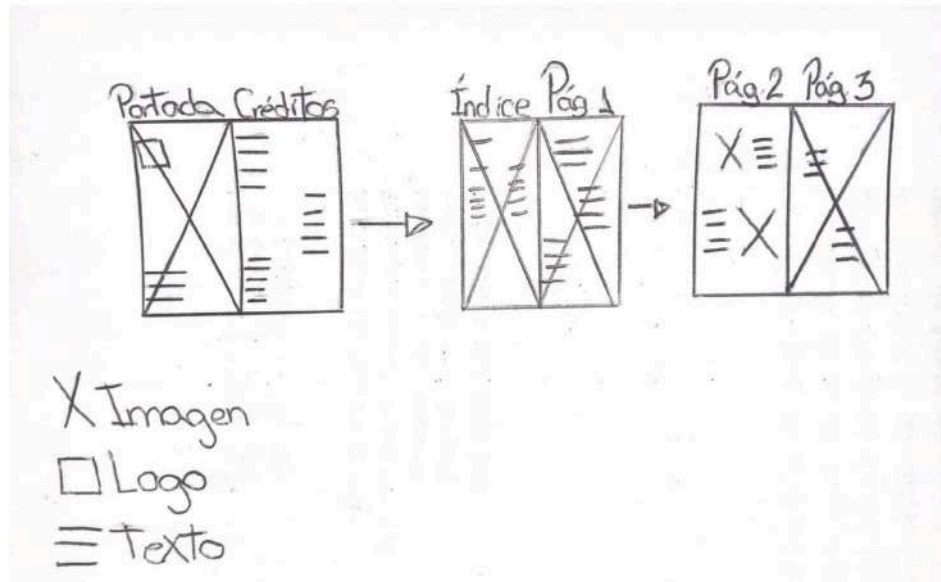 Portada Créditos
Índice Pág 1
Pág. 2 Pág. 3
Imagen
Logo
Texto